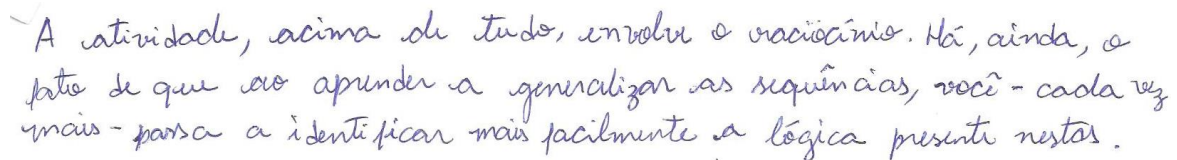 A atividade, acima de tudo, envolve o raciocínio. Há, ainda, o
fato de que ao aprender a generalizar as sequências, você - cada vez
mais - passa a identificar mais facilmente a lógica presente nestas.